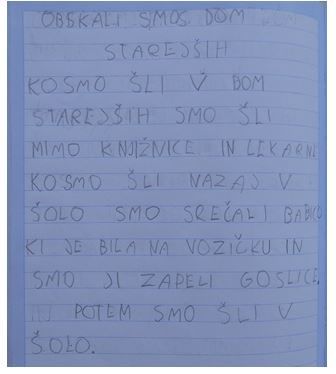 OBSKALI SMOS DOM
STAREJŠIH
KOSMO ŠLI V DOM
STAREJŠIH SMO ŠLI
MIMO KNJIŽNICE IN LEKARNE
KO SMO ŠLI NAZAJ V
ŠOLO SMO SREČALI BABICO
KI JE BILA NA VOZIČKU IN
SMO JI ZAPELI GOSLICE.
POTEM SMO ŠLI V
ŠOLO.